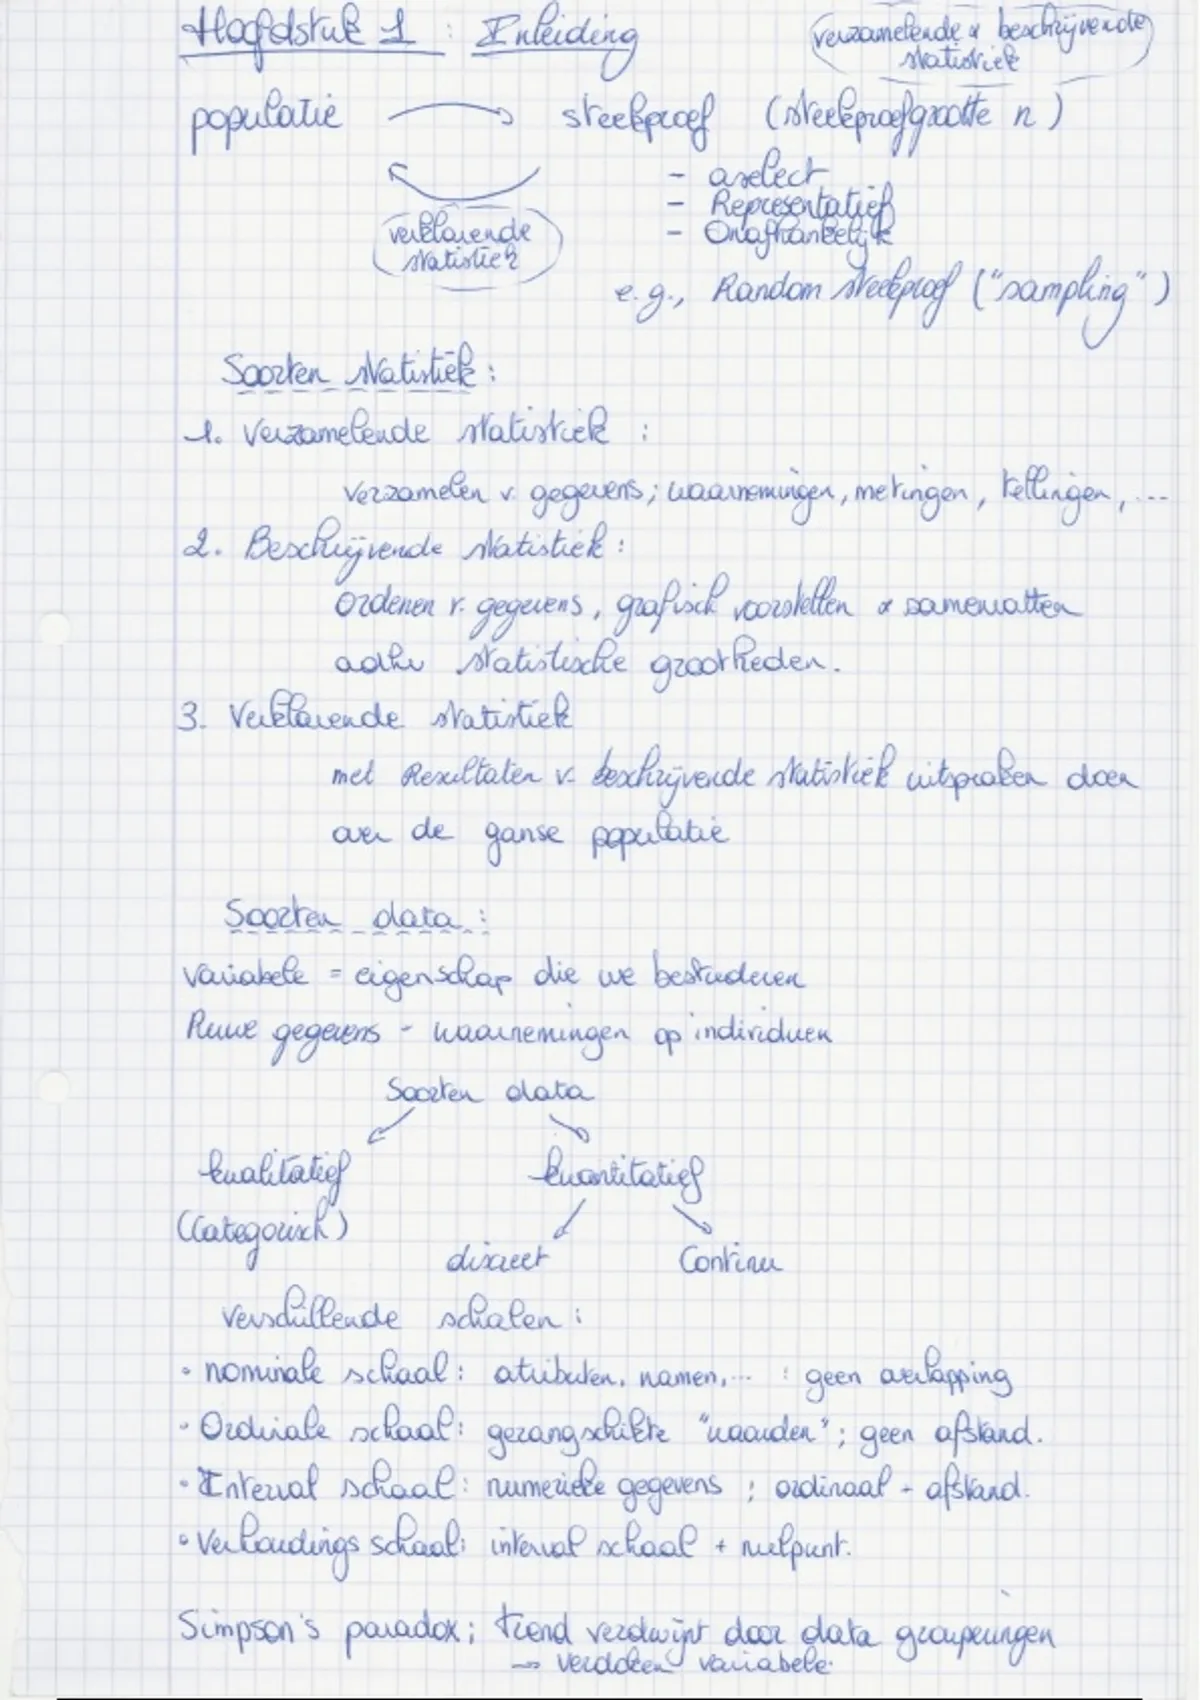 Hoofdstuk 1 : Inleiding
verzamelende & beschrijvende
statistiek
populatie → steekproef (steekproefgrootte n)
- aselect
- Representatief
- Onafhankelijk
verklarende
statistiek
e.g., Random steekproef ("sampling")
Soorten statistiek :
1. Verzamelende statistiek :
verzamelen v. gegevens; waarnemingen, metingen, tellingen, ...
2. Beschrijvende statistiek :
ordenen v. gegevens, grafisch voorstellen & samenvatten
adhv statistische grootheden.
3. Verklarende statistiek
met Resultaten v. beschrijvende statistiek uitspraken doen
over de ganse populatie
Soorten data :
variabele = eigenschap die we bestuderen
Ruwe gegevens - waarnemingen op individuen
Soorten data
kwalitatief kwantitatief
(Categorisch)
discreet Continu
verschillende schalen :
• nominale schaal : atributen, namen, ... : geen overlapping
• Ordinale schaal : gerangschikte "waarden" ; geen afstand.
• Interval schaal : numerieke gegevens ; ordinaal + afstand.
• Verhoudings schaal : interval schaal + nulpunt.
Simpson's paradox ; trend verdwijnt door data groeperingen
→ verdoken variabele.